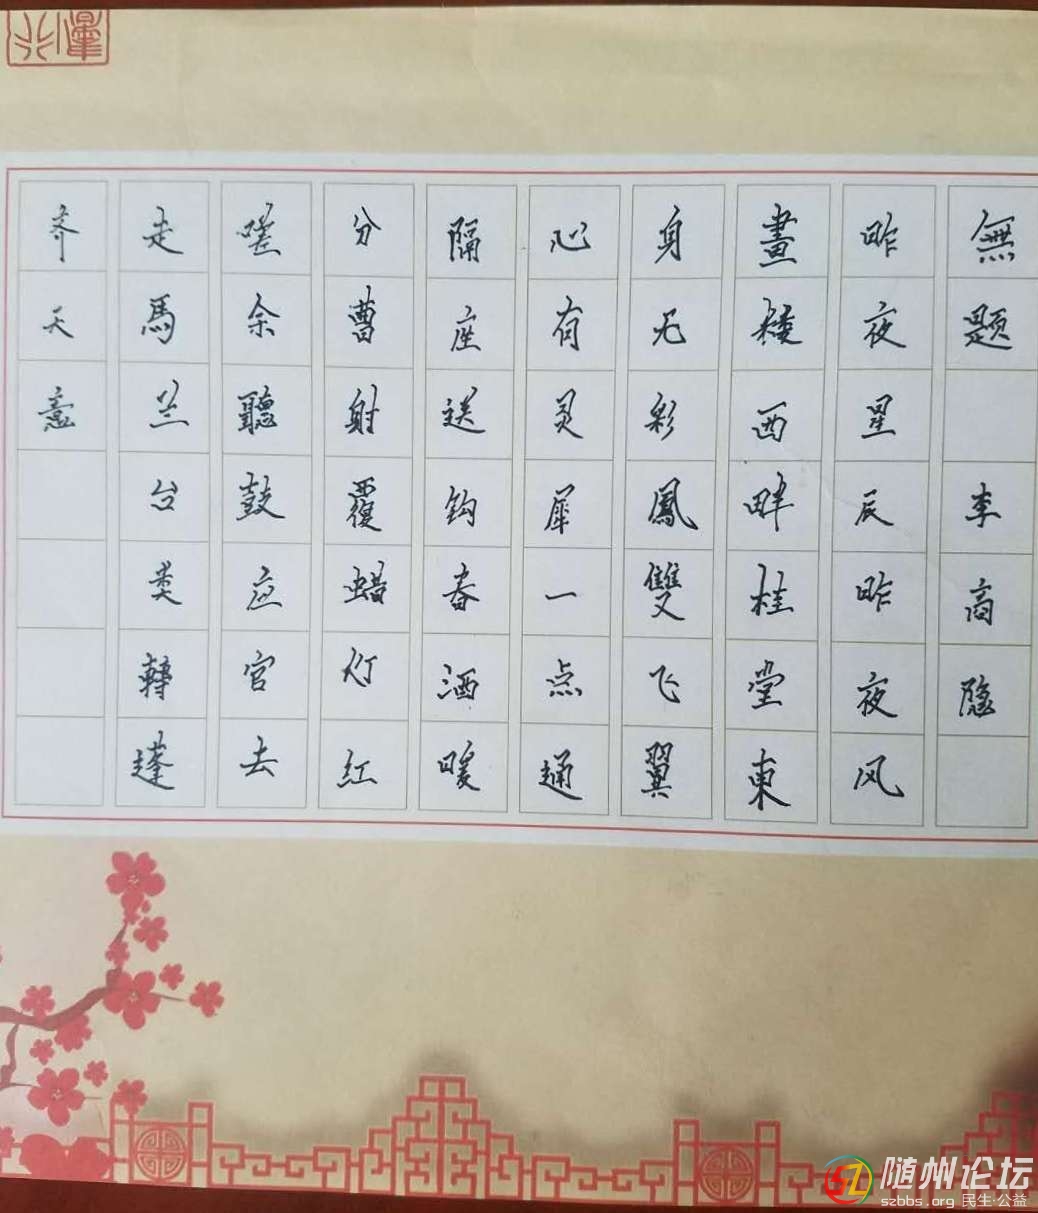 無题 李商隐
昨夜星辰昨夜风
畫楼西畔桂堂東
身无彩鳳雙飞翼
心有灵犀一点通
隔座送钩春酒暖
分曹射覆蜡灯红
嗟余聽鼓应官去
走馬兰台类轉蓬
齐天意
随州论坛
szbbs.org 民生·公益